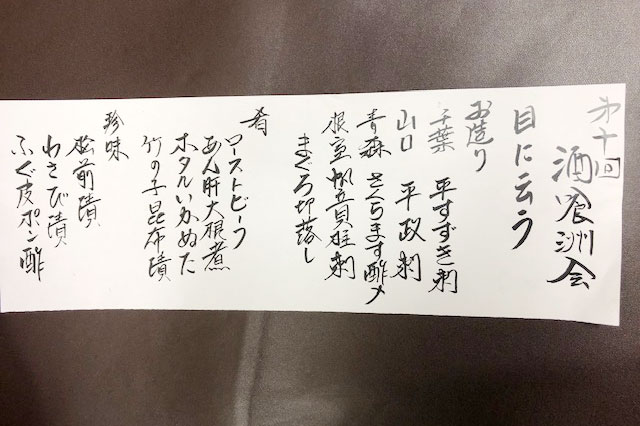 第十回
酒喰洲会
目に云う
お造り
千葉 平すずき刺
山口 平政刺
青森 さくらます酢〆
根室 帆立貝柱刺
まぐろ切落し
肴
ローストビーフ
あん肝大根煮
ホタルいかぬた
竹の子昆布漬
珍味
松前漬
わさび漬
ふぐ皮ポン酢